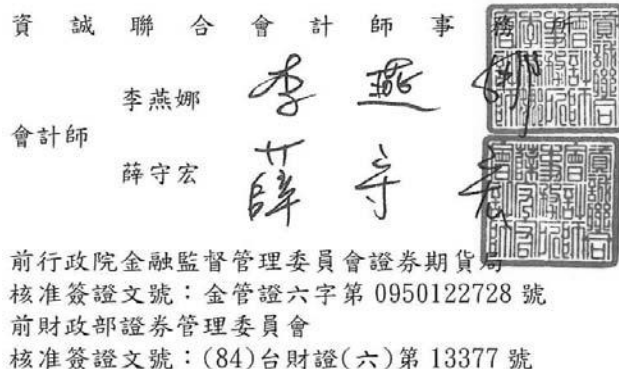 資誠聯合會計師事務所
李燕娜 李燕娜
會計師
薛守宏 薛守宏
前行政院金融監督管理委員會證券期貨局
核准簽證文號：金管證六字第 0950122728 號
前財政部證券管理委員會
核准簽證文號：(84)台財證(六)第 13377 號